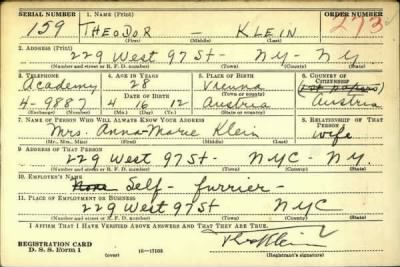 SERIAL NUMBER 1. NAME (Print) ORDER NUMBER
159 THEODOR - KLEIN 273
(First) (Middle) (Last)
2. ADDRESS (Print)
229 West 97 St - NY - NY
(Number and street or R. F. D. number) (Town) (County) (State)
3. TELEPHONE 4. AGE IN YEARS 5. PLACE OF BIRTH 6. COUNTRY OF CITIZENSHIP
Academy 28 Vienna (1st papers)
DATE OF BIRTH (Town or county)
4-9887 4 16 12 Austria Austria
(Exchange) (No.) (Mo.) (Day) (Yr.) (State or country)
7. NAME OF PERSON WHO WILL ALWAYS KNOW YOUR ADDRESS 8. RELATIONSHIP OF THAT PERSON
Mrs. Anna-Marie Klein wife
(Mr., Mrs., Miss) (First) (Middle) (Last)
9. ADDRESS OF THAT PERSON
229 West 97 St - NYC - NY.
(Number and street or R. F. D. number) (Town) (County) (State)
10. EMPLOYER'S NAME
None Self - furrier -
11. PLACE OF EMPLOYMENT OR BUSINESS
229 West 97 St NYC
(Number and street or R. F. D. number) (Town) (County) (State)
I AFFIRM THAT I HAVE VERIFIED ABOVE ANSWERS AND THAT THEY ARE TRUE.
REGISTRATION CARD
D. S. S. Form 1 16-17105 (Registrant's signature)